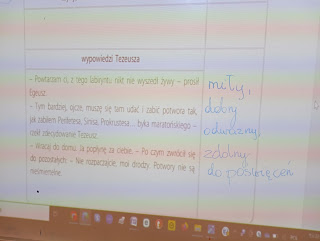 wypowiedzi Tezeusza
– Powtarzam ci, z tego labiryntu nikt nie wyszedł żywy – prosił
Egeusz.
– Tym bardziej, ojcze, muszę się tam udać i zabić potwora tak,
jak zabiłem Perifetesa, Sinisa, Prokrustesa... byka maratońskiego –
rzekł zdecydowanie Tezeusz.
– Wracaj do domu. Ja popłynę za ciebie. – Po czym zwrócił się
do pozostałych: – Nie rozpaczajcie, moi drodzy. Potwory nie są
nieśmiertelne.
miły,
dobry
odważny,
zdolny
do poświęceń